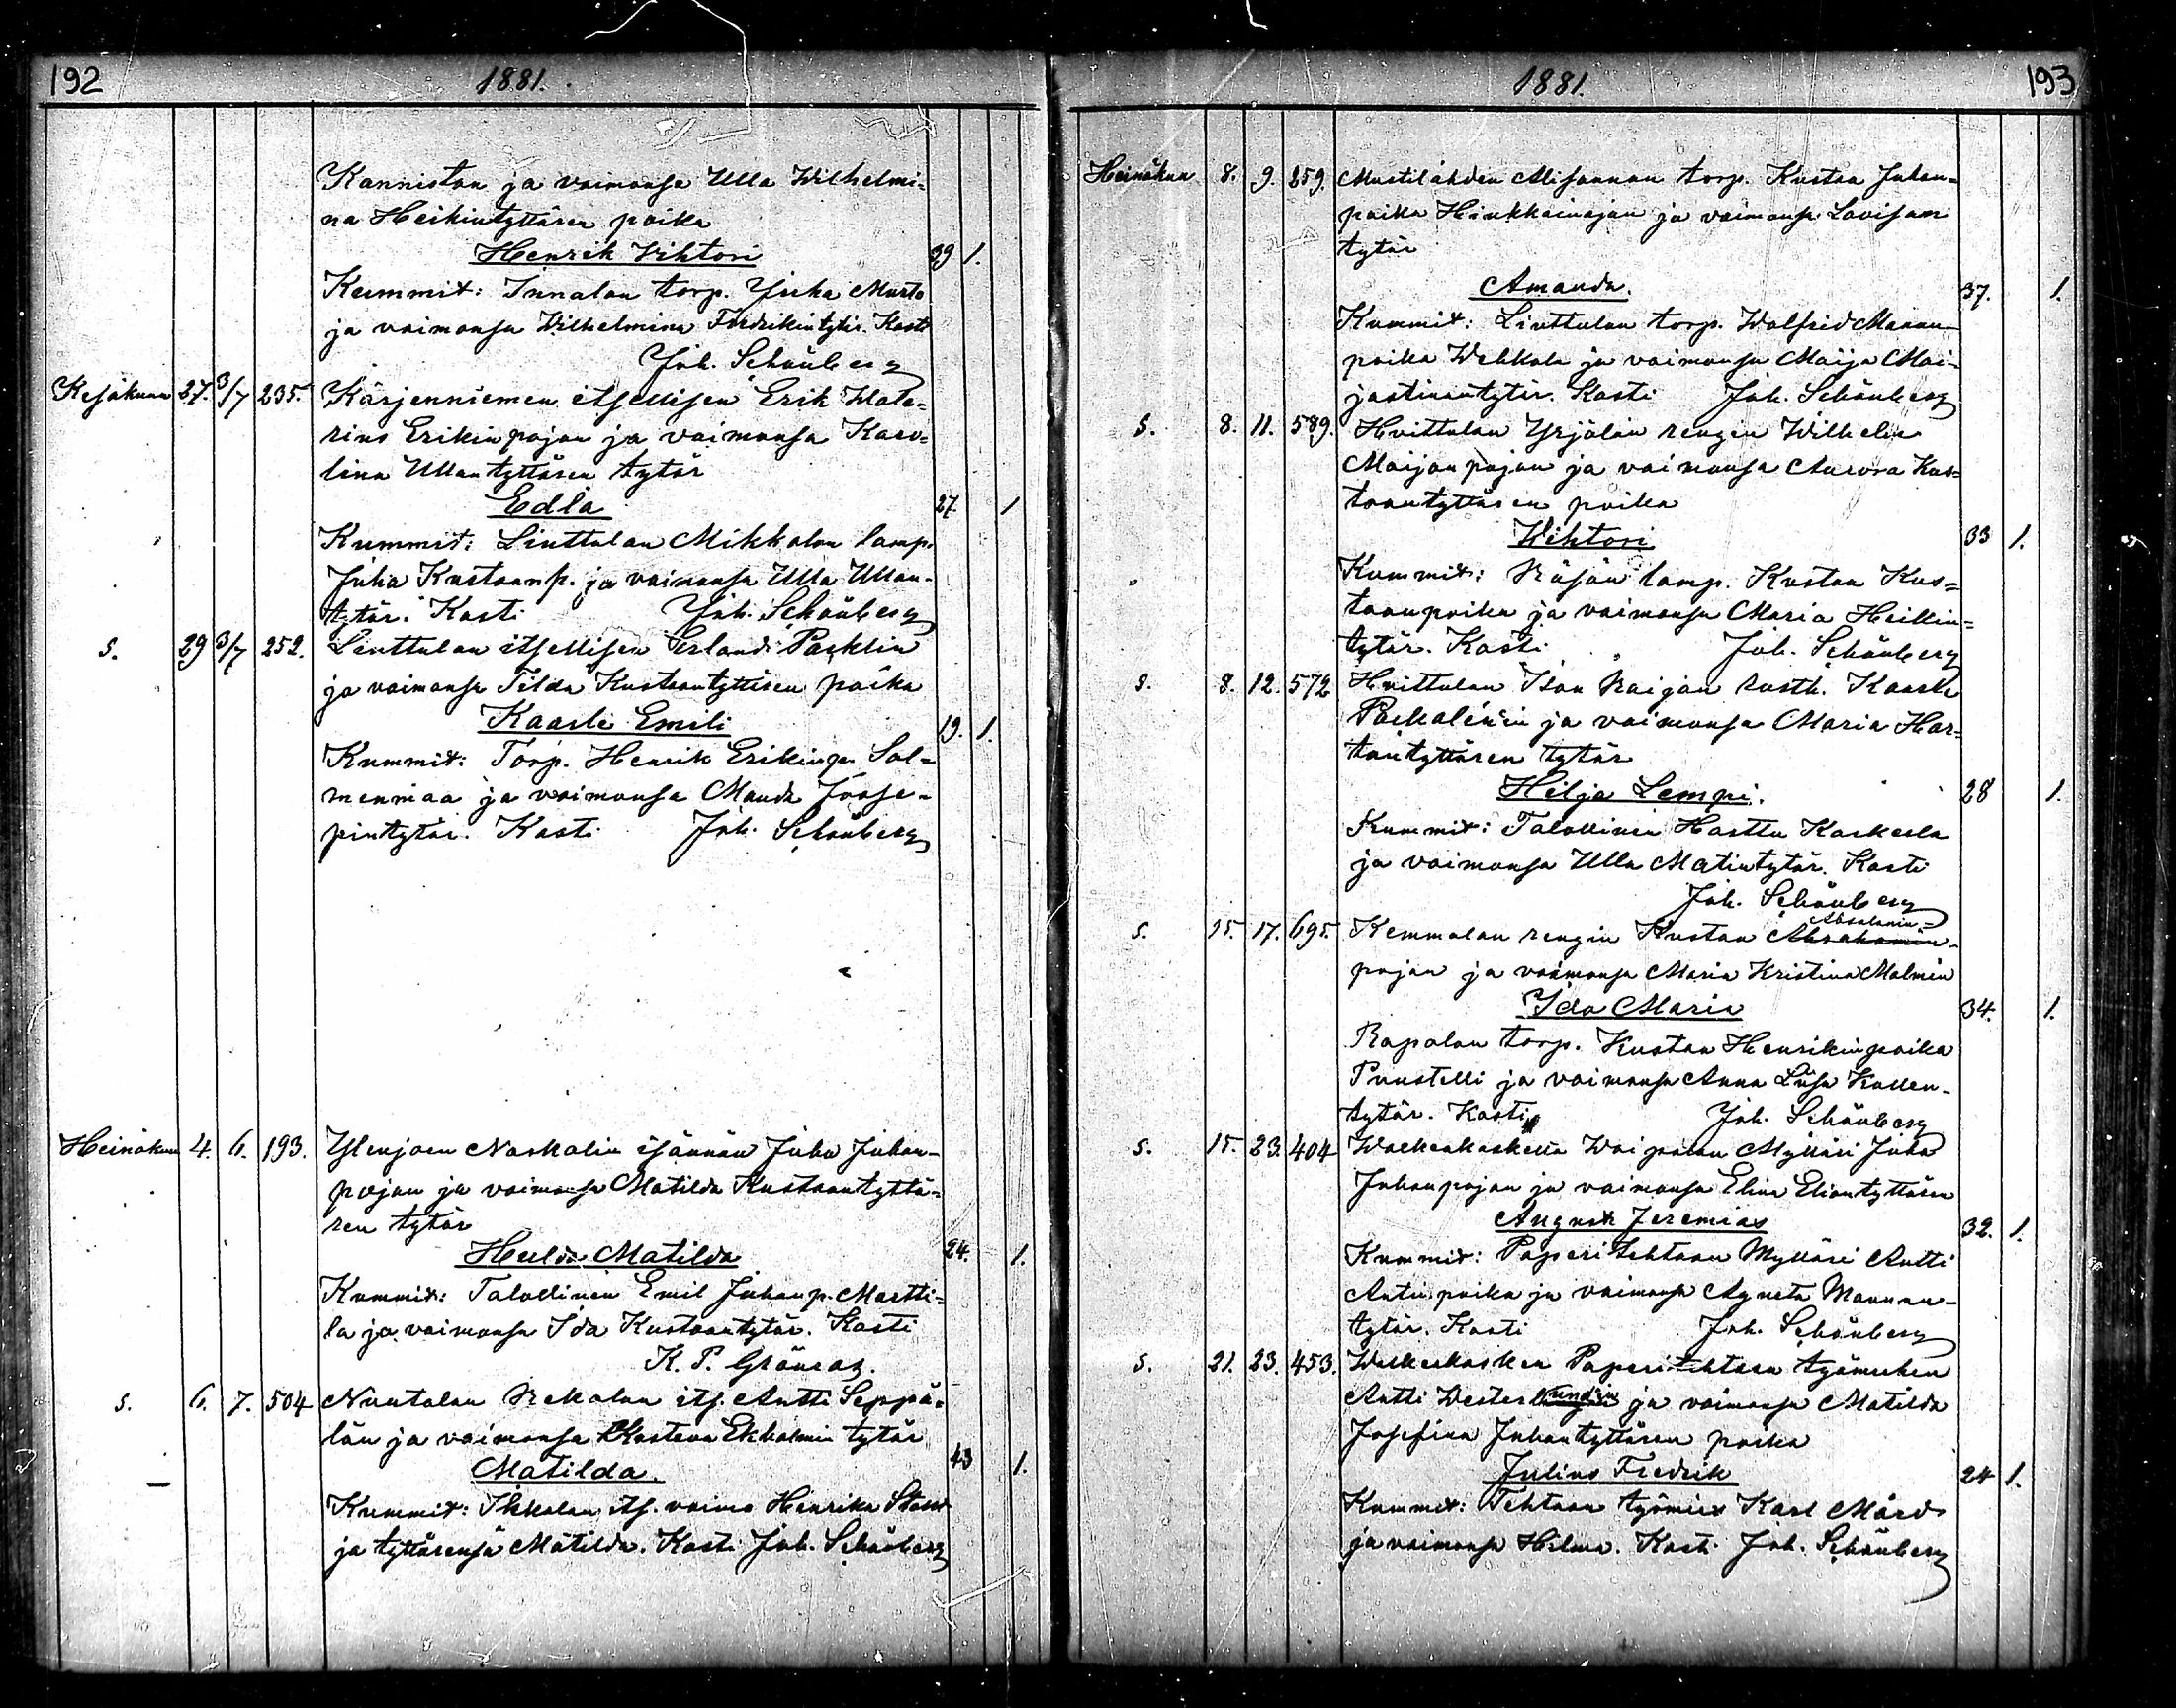 192 1881.
Kanniston ja vaimonsa Ulla Wilhelmi-
na Heikintyttären poika
Henrik Vihtori 39 1.
Kummit: Innalan torp. Juha Murto
ja vaimonsa Wilhelmina Fredrikintytär. Kasti
Joh. Schönberg
Kesäkuun 27. 3/7 235. Kärjenniemen itsellisen Erik Wale-
rius Erikinpojan ja vaimonsa Karo-
lina Ullantyttären tytär
Edla 27. 1
Kummit: Liuttulan Mikkolan lamp.
Juha Kustaanp. ja vaimonsa Ulla Ullan-
tytär. Kasti Joh. Schönberg
S. 29 3/7 252. Liuttulan itsellisen Erland Packlin
ja vaimonsa Tilda Kustaantyttären poika
Kaarle Emili 19. 1.
Kummit: Torp. Henrik Erikinp. Sal-
menmaa ja vaimonsa Manda Joose-
pintytär. Kasti Joh. Schönberg
Heinäkuun 4. 6. 193. Ylenjoen Naskalin isännän Juha Juhan-
pojan ja vaimonsa Matilda Kustaantyttä-
ren tytär
Hulda Matilda 24. 1.
Kummit: Talollinen Emil Juhanp. Martti-
la ja vaimonsa Ida Kustaantytär. Kasti
K. P. Grönroos.
S. 6. 7. 504 Niutalan Rekolan its. Antti Seppä-
län ja vaimonsa Kustava Ekholmin tytär
Matilda. 43 1.
Kummit: Ikkalan its. vaimo Henrika
ja tyttärensä Matilda. Kasti Joh. Schönberg
1881. 193
Heinäkuun 8. 9. 259. Mustilahden Alisannan torp. Kustaa Juhan-
poika Hinkkainojan ja vaimonsa Lovisan
tytär
Amanda. 37. 1.
Kummit: Liuttulan torp. Walfrid Manun-
poika Wehkala ja vaimonsa Maija Mai-
jastiinantytär. Kasti Joh. Schönberg
S. 8. 11. 589. Huittulan Yrjölän rengin Wilhelm
Maijanpojan ja vaimonsa Aurora Kus-
taantyttären poika
Wihtori 33 1.
Kummit: Räsän lamp. Kustaa Kus-
taanpoika ja vaimonsa Maria Heikin-
tytär. Kasti Joh. Schönberg
S. 8. 12. 572 Huittulan Ison Raijan rusth. Kaarle
Packalénin ja vaimonsa Maria Har-
tantyttären tytär
Hilja Lempi. 28 1.
Kummit: Talollinen Harttu Kaskela
ja vaimonsa Ulla Matintytär. Kasti
Joh. Schönberg
S. 15. 17. 695. Kemmolan rengin Kustaa Abrahamin- Absalomin-
pojan ja vaimonsa Maria Kristina Malmin
Ida Maria 34. 1.
Rapalan torp. Kustaa Henrikinpoika
Puustelli ja vaimonsa Anna Liisa Kallen-
tytär. Kasti Joh. Schönberg
S. 15. 23. 404 Walkeakosken Woipalan Mylläri Juha
Juhanpojan ja vaimonsa Elina Eliantyttären
August Jeremias 32. 1.
Kummit: Paperitehtaan Mylläri Antti
Antinpoika ja vaimonsa Agneta Manuun-
tytär. Kasti Joh. Schönberg
S. 21. 23. 453. Walkeakosken Paperitehtaan työmiehen
Antti Westerlundin ja vaimonsa Matilda
Josefina Juhantyttären poika
Julius Fredrik 24 1.
Kummit: Tehtaan työmies Karl Mård
ja vaimonsa Hilma. Kasti Joh. Schönberg